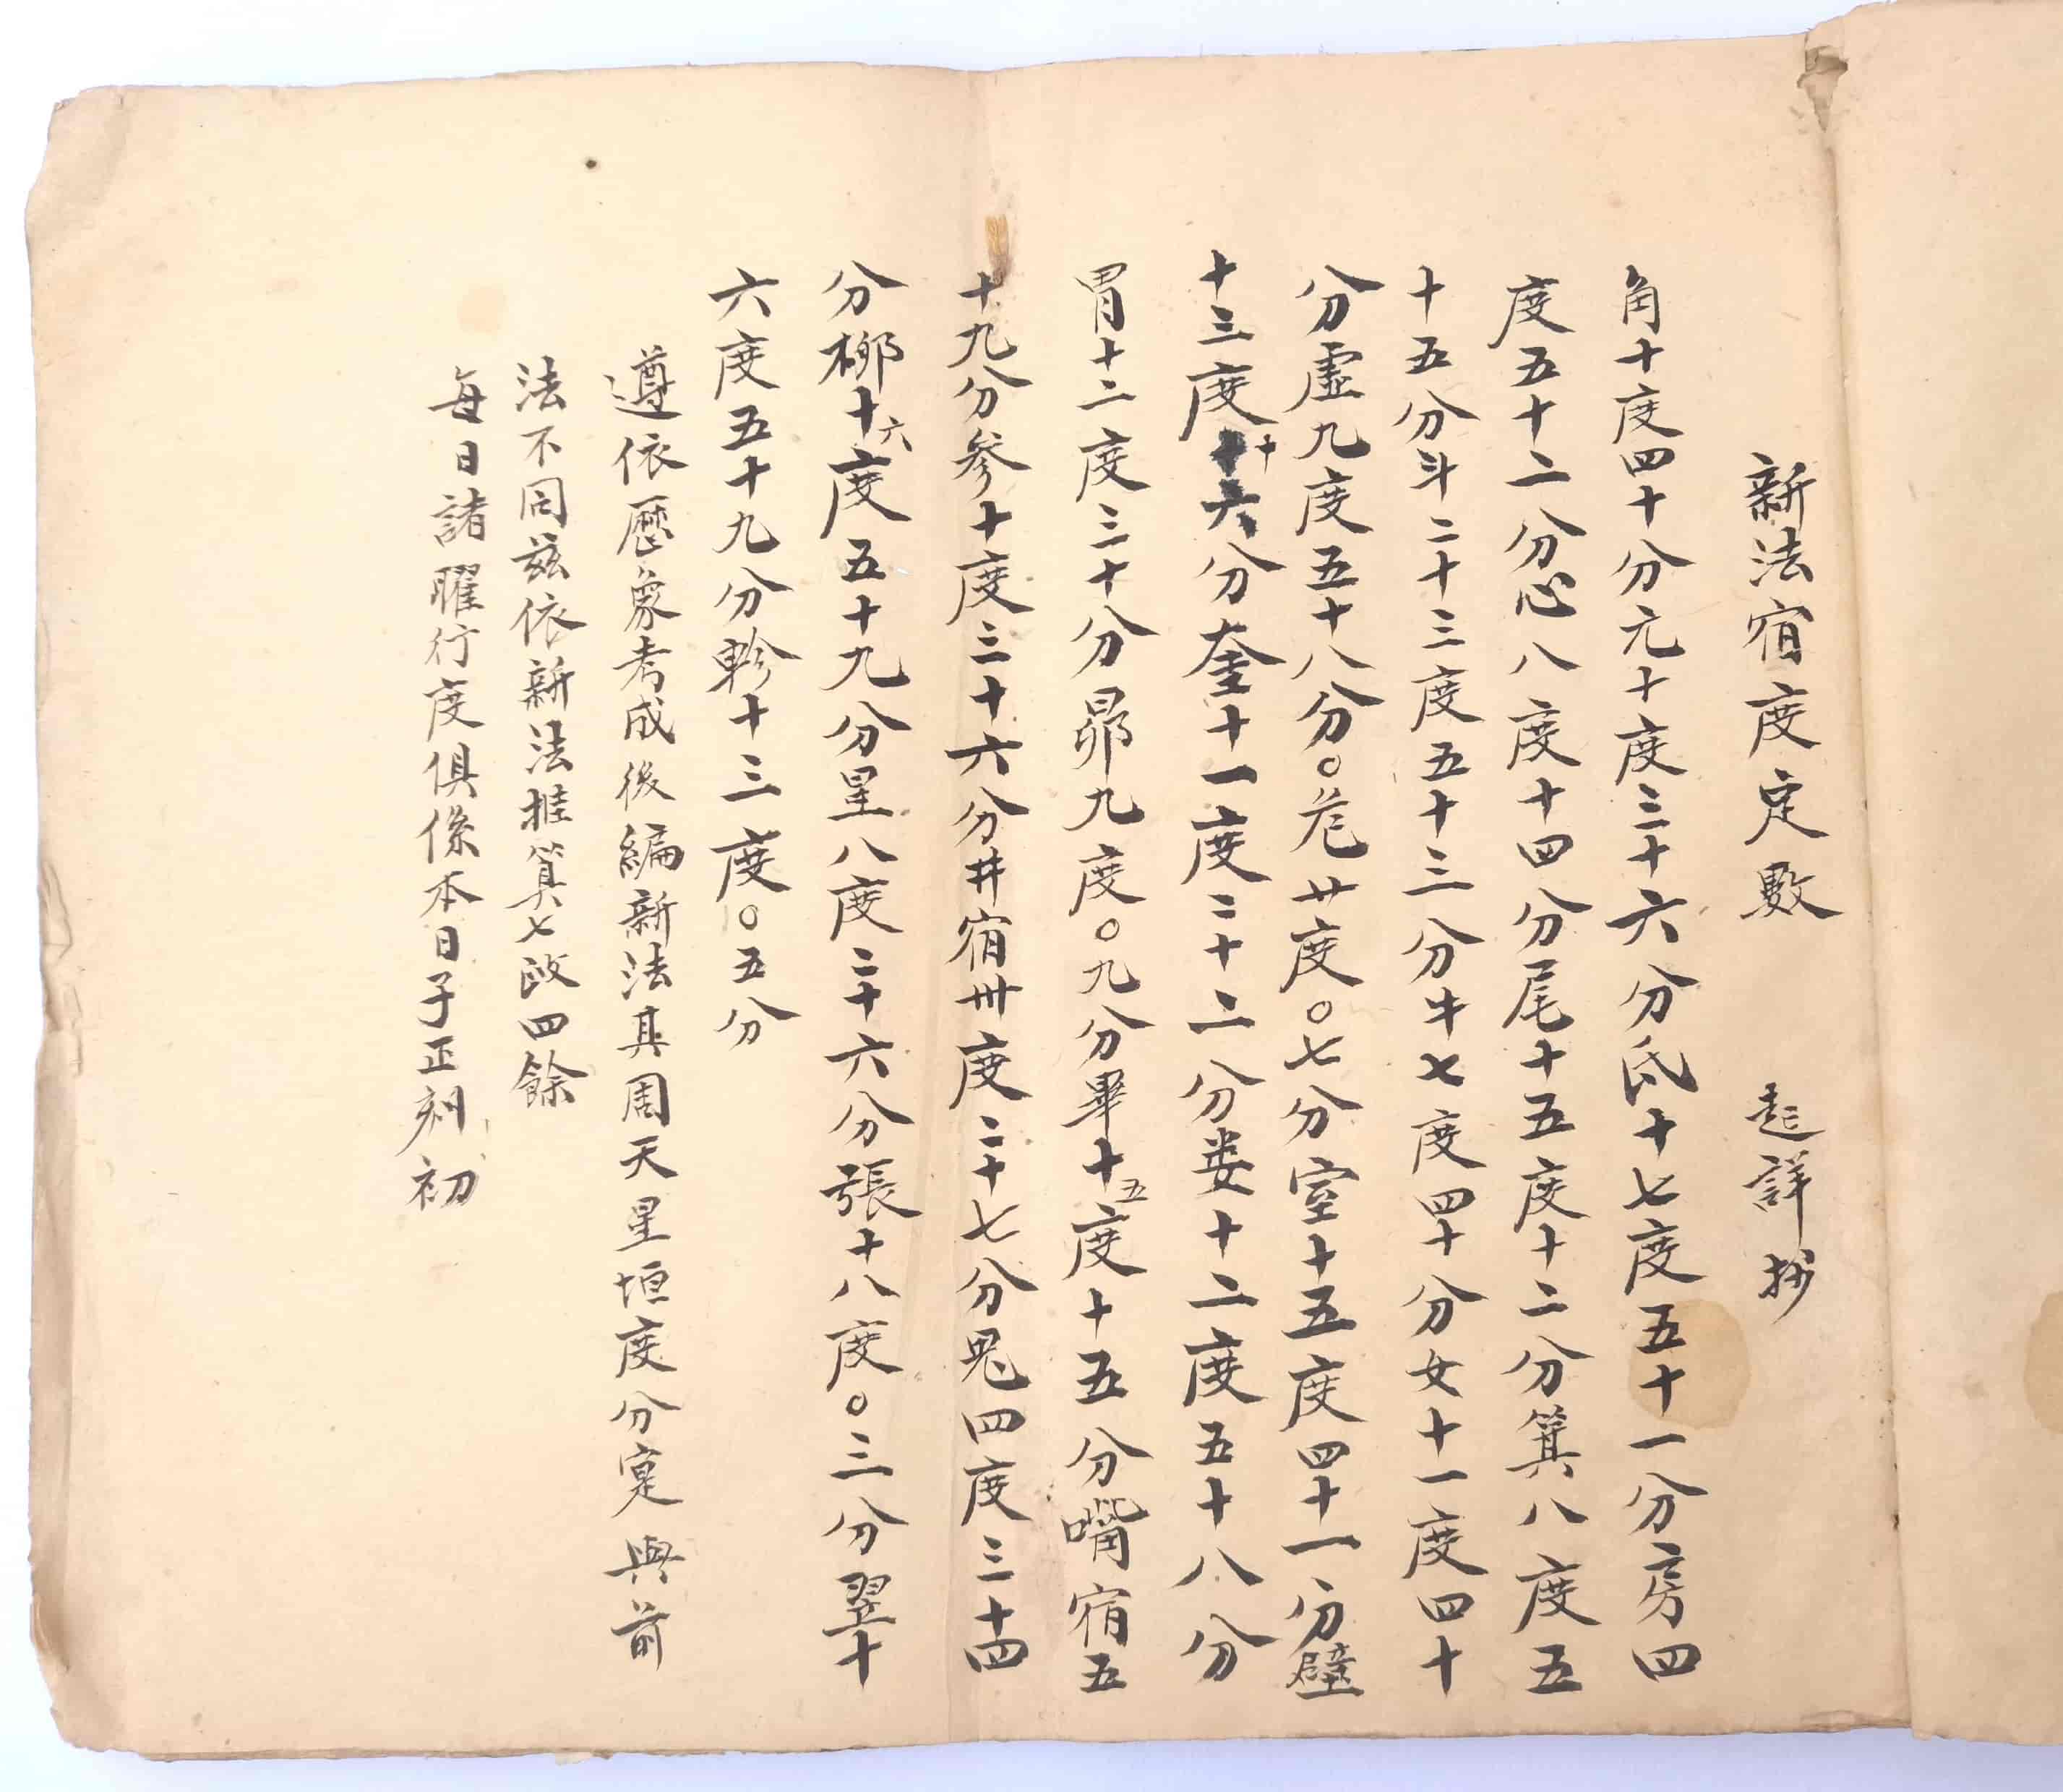 新法宿度定數 起詳抄
角十度四十分亢十度三十六分氐十七度五十一分房四
度五十二分心八度十四分尾十五度十二分箕八度五
十五分斗二十三度五十三分牛七度四十分女十一度四十
分虛九度五十八分。危廿度。七分室十五度四十一分壁
十三度十六分奎十一度二十二分婁十二度五十八分
胃十二度三十分昴九度。九分畢十五度十五分嘴宿五
十九分參十度三十六分井宿卅度二十七分鬼四度三十四
分柳十六度五十九分星八度二十六分張十八度。三分翌十
六度五十九分軫十三度。五分
遵依歷象考成後編新法其周天星垣度分寔與前
法不同茲依新法推算七政四餘
每日諸曜行度俱係本日子正刻初